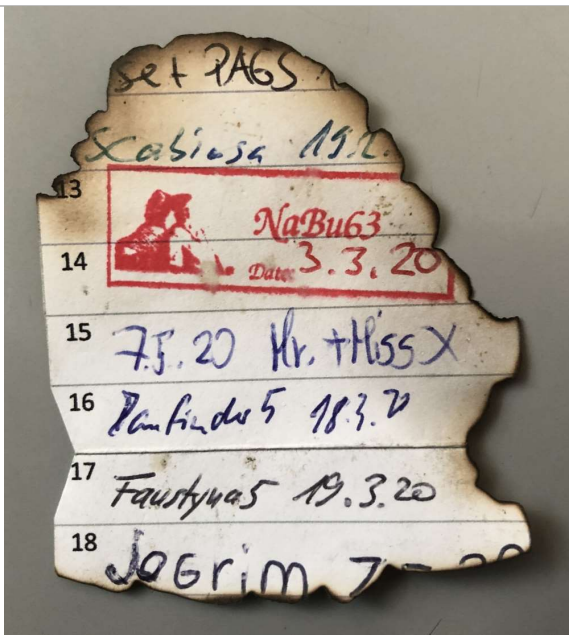 set PAGS
Scabiosa 19.2.
13
NaBu63
14
Date: 3.3.20
15 7.5.20 Mr. + Miss X
16 5 18.3.20
17 Faustyna5 19.3.20
18 JoGrim